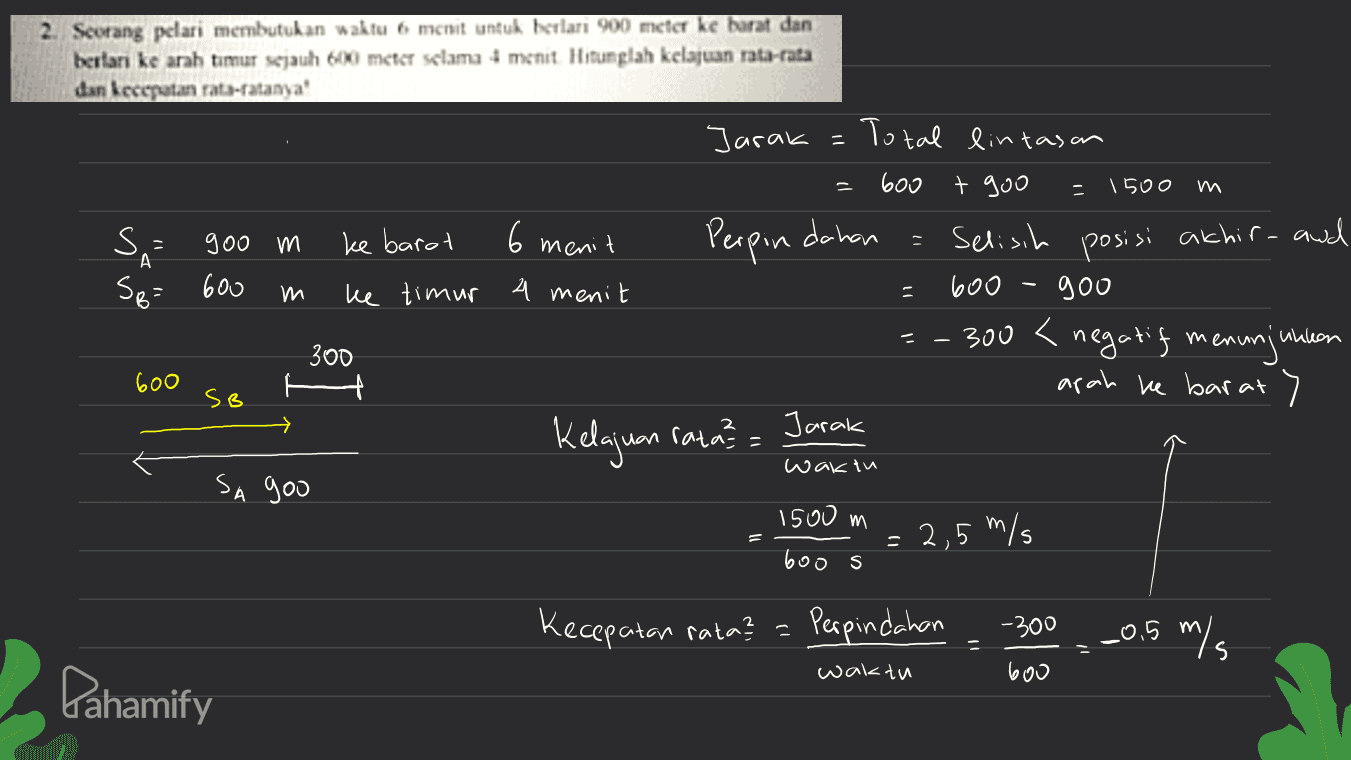 2. Seorang pelari membutukan waktu 6 menit untuk berlari 900 meter ke barat dan
berlari ke arah timur sejauh 600 meter selama 4 menit. Hitunglah kelajuan rata-rata
dan kecepatan rata-ratanya!
Jarak = Total lintasan
= 600 + 900 = 1500 m
S_A = 900 m ke barat 6 menit
S_B = 600 m ke timur 4 menit
Perpindahan = Selisih posisi akhir - awal
= 600 - 900
= - 300 < negatif menunjukkan
arah ke barat >
300
600 S_B
S_A 900
Kelajuan rata² = Jarak / waktu
= 1500 m / 600 s = 2,5 m/s
Kecepatan rata² = Perpindahan / waktu = -300 / 600 = -0,5 m/s
Pahamify